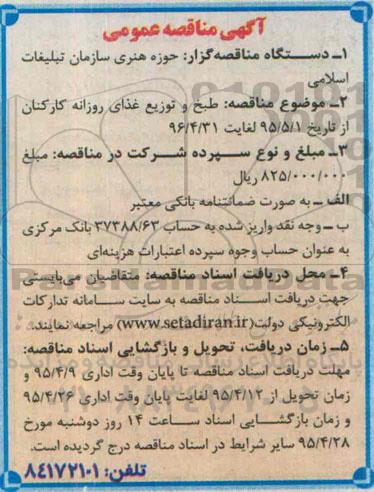 آگهی مناقصه عمومی
۱ـ دستگاه مناقصه‌گزار: حوزه هنری سازمان تبلیغات
اسلامی
۲ـ موضوع مناقصه: طبخ و توزیع غذای روزانه کارکنان
از تاریخ ۹۵/۵/۱ لغایت ۹۶/۴/۳۱
۳ـ مبلغ و نوع سپرده شرکت در مناقصه: مبلغ
۸۲۵/۰۰۰/۰۰۰ ریال
الف ـ به صورت ضمانتنامه بانکی معتبر
ب ـ وجه نقد واریز شده به حساب ۳۷۳۸۸/۶۳ بانک مرکزی
به عنوان حساب وجوه سپرده اعتبارات هزینه‌ای
۴ـ محل دریافت اسناد مناقصه: متقاضیان می‌بایستی
جهت دریافت اسناد مناقصه به سایت سامانه تدارکات
الکترونیکی دولت(www.setadiran.ir) مراجعه نمایند.
۵ـ زمان دریافت، تحویل و بازگشایی اسناد مناقصه:
مهلت دریافت اسناد مناقصه تا پایان وقت اداری ۹۵/۴/۹ و
زمان تحویل از ۹۵/۴/۱۲ لغایت پایان وقت اداری ۹۵/۴/۲۶
و زمان بازگشایی اسناد ساعت ۱۴ روز دوشنبه مورخ
۹۵/۴/۲۸ سایر شرایط در اسناد مناقصه درج گردیده است.
تلفن: ۸۴۱۷۲۱۰۱